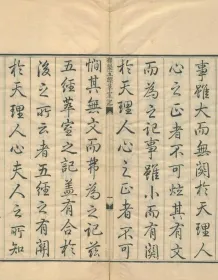 事雖大而無關於天理人
心之正者不可炫其有文
而為之記事雖小而有關
於天理人心之正者不可
憫其無文而弗為之記茲
五經萃室之記蓋有合於
後之所云者五經之有關
於天理人心夫人之所知